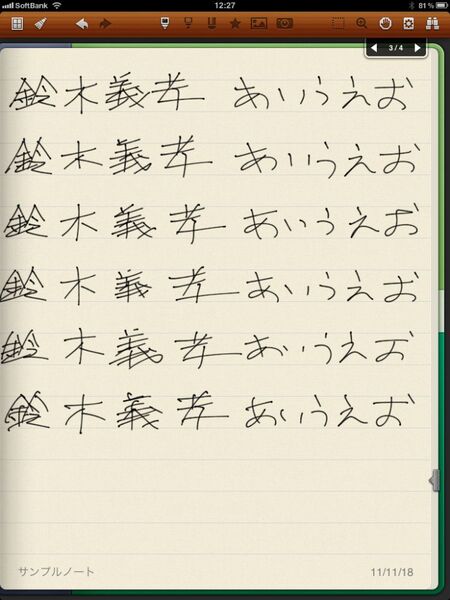 SoftBank 12:27 81%
3/4
鈴木義孝 あいうえお
鈴木義孝 あいうえお
鈴木義孝 あいうえお
鈴木義孝 あいうえお
鈴木義孝 あいうえお
鈴木義孝 あいうえお
サンプルノート 11/11/18